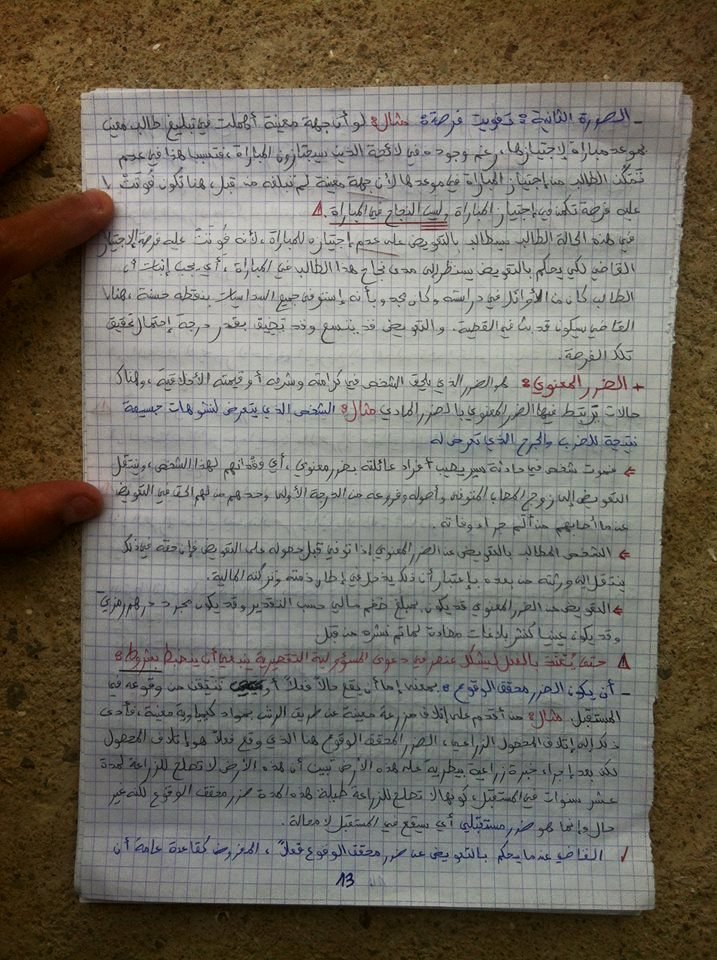 - الصورة الثانية: تفويت فرصة: مثال: لو أن جهة معينة أهملت في تبليغ طالب معين
بموعد مباراة لإجتيازها، رغم وجوده في لائحة الذين سيجتازون المباراة، فتسبب هذا في عدم
تمكن الطالب من إجتياز المباراة في موعدها لأن جهة معينة لم تبلغه من قبل، هنا تكون فُوتت
عليه فرصة تكمن في إجتياز المباراة وليس النجاح في المباراة.
في هذه الحالة الطالب سيطالب بالتعويض على عدم إجتيازه للمباراة، لأنه فُوتت عليه فرصة الإجتياز
القاضي لكي يحكم بالتعويض سينظر إلى مدى نجاح هذا الطالب في المباراة، أي يجب إثبات أن
الطالب كان من الأوائل في دراسته وكان مجد وبأنه إستوفى جميع السداسيات بنقطة حسنة، هنا
القاضي سيكون قد بث في القضية. والتعويض قد يتسع وقد يضيق بقدر درجة إحتمال تحقيق
تلك الفرصة.
+ الضرر المعنوي: هو الضرر الذي يلحق الشخص في كرامته وشرفه أو قيمته الأخلاقية، وهناك
حالات يرتبط فيها الضرر المعنوي بالضرر المادي مثال: الشخص الذي يتعرض لتشوهات جسيمة
نتيجة للضرب والجرح الذي تعرض له
فموت شخص في حادثة سير يصيب أفراد عائلته بضرر معنوي، أي فقدانهم لهذا الشخص، وينتقل
التعويض إلى زوج المصاب المتوفى وأصوله وفروعه من الدرجة الأولى وحدهم من لهم الحق في التعويض
عن ما أصابهم من ألم جراء وفاته.
الشخص المطالب بالتعويض عن الضرر المعنوي إذا توفي قبل حصوله على التعويض فإن حقه في ذلك
ينتقل إلى ورثته من بعده بإعتبار أن ذلك يدخل في إطار ذمته وتركته المالية.
التعويض عن الضرر المعنوي قد يكون بمبلغ ضخم مالي حسب التقدير وقد يكون مجرد درهم رمزي
وقد يكون عينيا كنشر بلاغات مضادة لما تم نشره من قبل
حتى يُعتد بالفعل ليشكل عنصر في دعوى المسؤولية التقصيرية ينبغي أن ينضبط بشروط:
- أن يكون الضرر محقق الوقوع: بمعنى إما أن يقع حالا فعلا أو نتيقن من وقوعه في
المستقبل. مثال: من أقدم على إتلاف مزرعة معينة عن طريق الرش بمواد كيماوية معينة، فأدى
ذلك إلى إتلاف المحصول الزراعي، الضرر المحقق الوقوع هنا الذي وقع فعلا هو إتلاف المحصول
لكن بعد إجراء خبرة زراعية بيطرية على هذه الأرض تبين أن هذه الأرض لا تصلح للزراعة لمدة
عشر سنوات في المستقبل، كونها لا تصلح للزراعة طيلة هذه المدة ضرر محقق الوقوع لكنه غير
حال وإنما هو ضرر مستقبلي أي سيقع في المستقبل لا محالة.
القاضي عندما يحكم بالتعويض عن ضرر محقق الوقوع فعلا، المفروض كقاعدة عامة أن
13